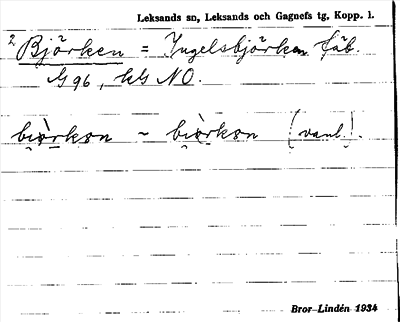 Leksands sn, Leksands och Gagnefs tg, Kopp. l.
2 Björken = Ingelsbjörken fäb.
G 96, kG NO.
(vanl.)
Bror Lindén 1934